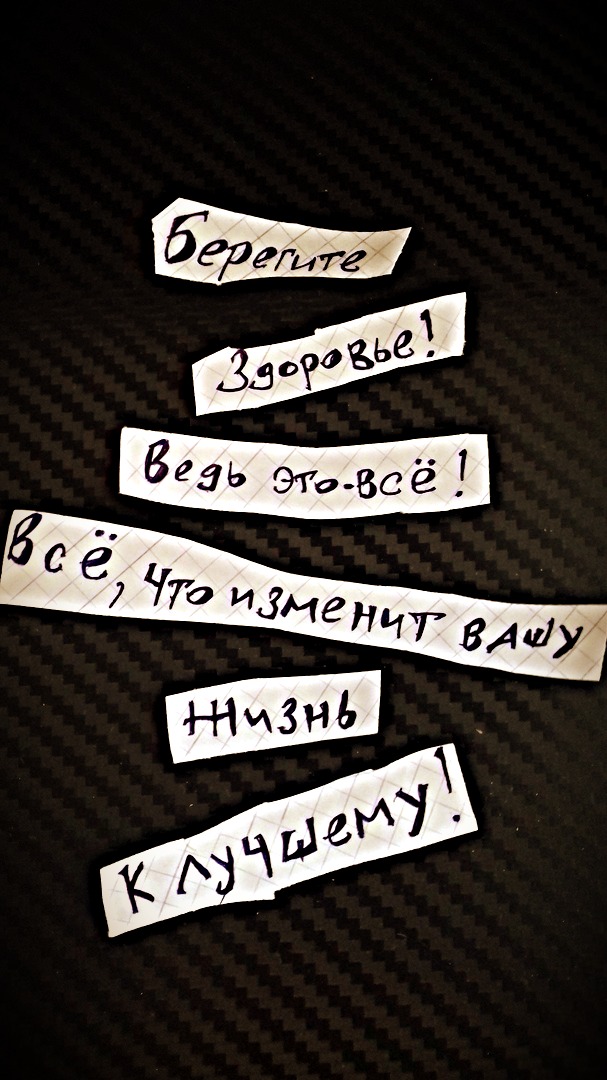 Берегите
Здоровье!
Ведь это-всё!
Всё, что изменит вашу
Жизнь
К лучшему!